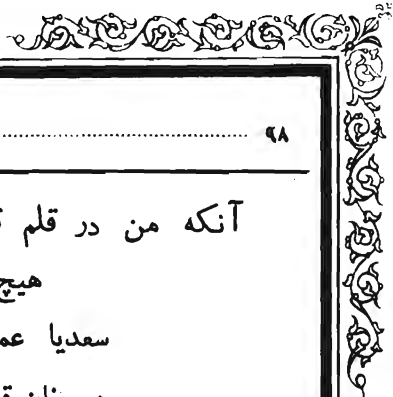 ۹۸
آنکه من در قلم
هیچ
سعدیا